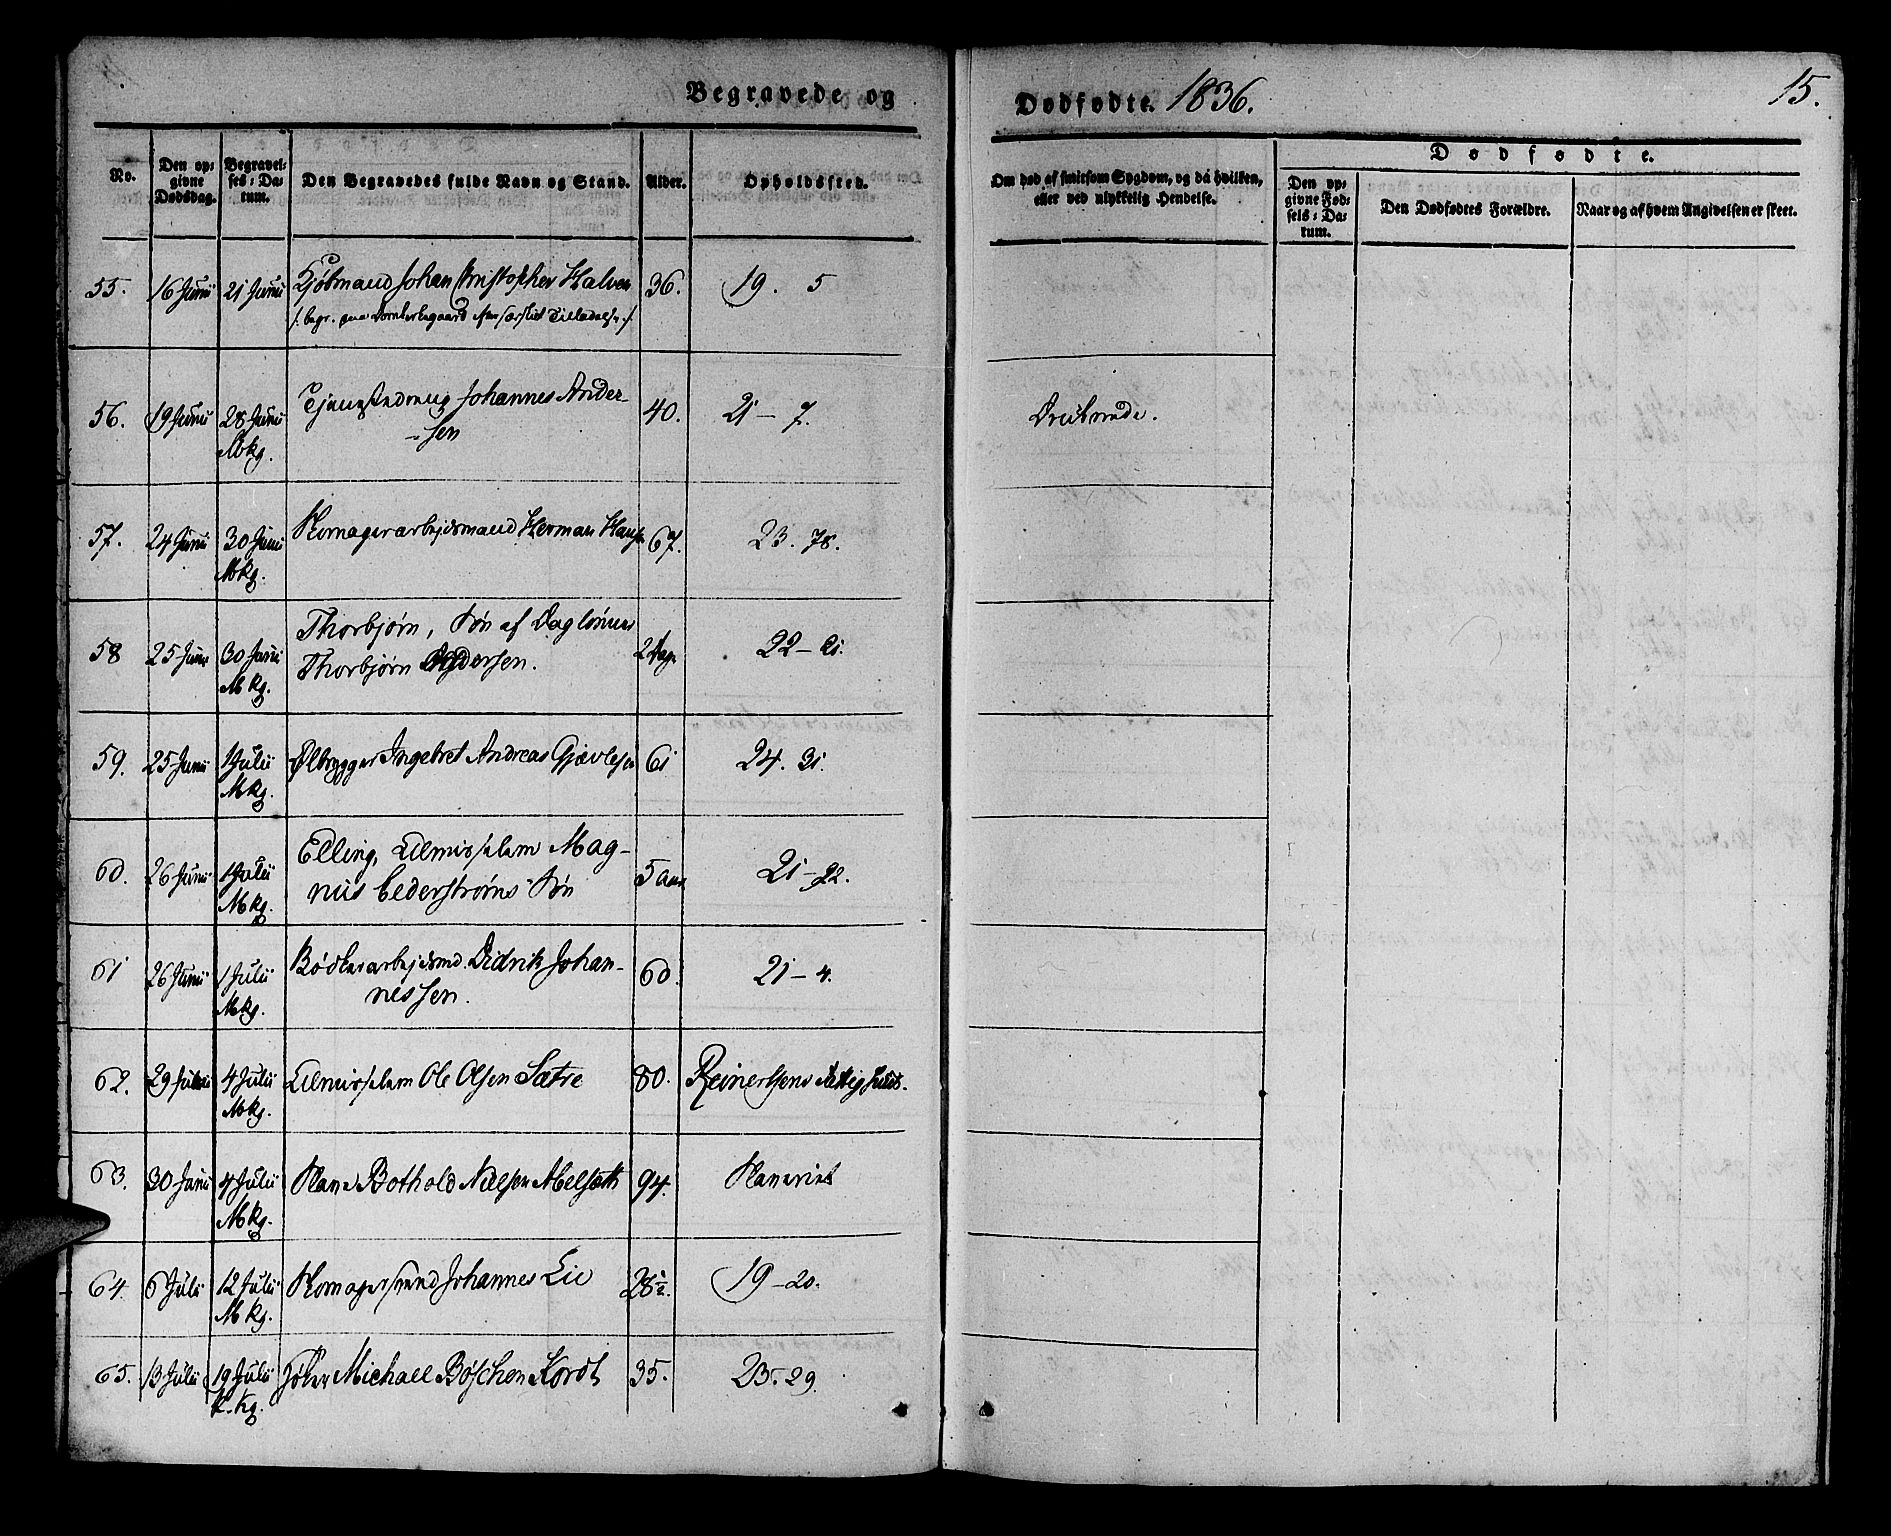 Begravede og
Dødfødte. 1836.
15.
No.
Den op-
givne
Dødsdag.
Begravel-
ses-Da-
tum.
Den Begravedes fulde Navn og Stand.
Alder.
Opholdssted.
Om død af smitsom Sygdom, og da hvilken,
eller ved ulykkelig Hendelse.
Dødfødte.
Den op-
givne Fød-
sels-Da-
tum.
Den Dødfødtes Forældre.
Naar og af hvem Angivelsen er skeet.
55. 16 Junii 21 Junii Kjøbmand Johan Christopher Halven 36. 19. 5
56. 19 Junii 28 Junii Tjenestedreng Johannes Ander- 40. 21 – 7. Druknede.
Mkg. -sen
57. 24 Junii 30 Junii Skomagerarbejdsmand Herman Hansen 67. 23. 78.
Mkg.
58 25 Junii 30 Junii Thorbjørn, Søn af Daglønner 2 Dage 22 – 21.
Mkg. Thorbjørn Andersen.
59. 25 Junii 1 Julii Ølbrygger Ingebret Andreas Gjævlesen 61 24. 31.
Mkg.
60. 26 Junii 1 Julii Elling, Almisselem Mag- 5 aar 21 – 22.
Mkg. nus Cederstrøms Søn
61 26 Junii 1 Julii Bødkerarbejdsmd. Didrik Johan- 60. 21 – 4.
Mkg. nessen.
62. 29 Junii 4 Julii Almisselem Ole Olsen Sætre 80. Reinertsens
Mkg.
63. 30 Junii 4 Julii Bothold Nielsen 94.
Mkg.
64. 6 Julii 12 Julii Skomagersvend Johannes Lie 28½. 19 – 20.
Mkg.
65. 13 Julii 19 Julii Michael Bøschen Kordt 35. 23. 29.
K.kg.